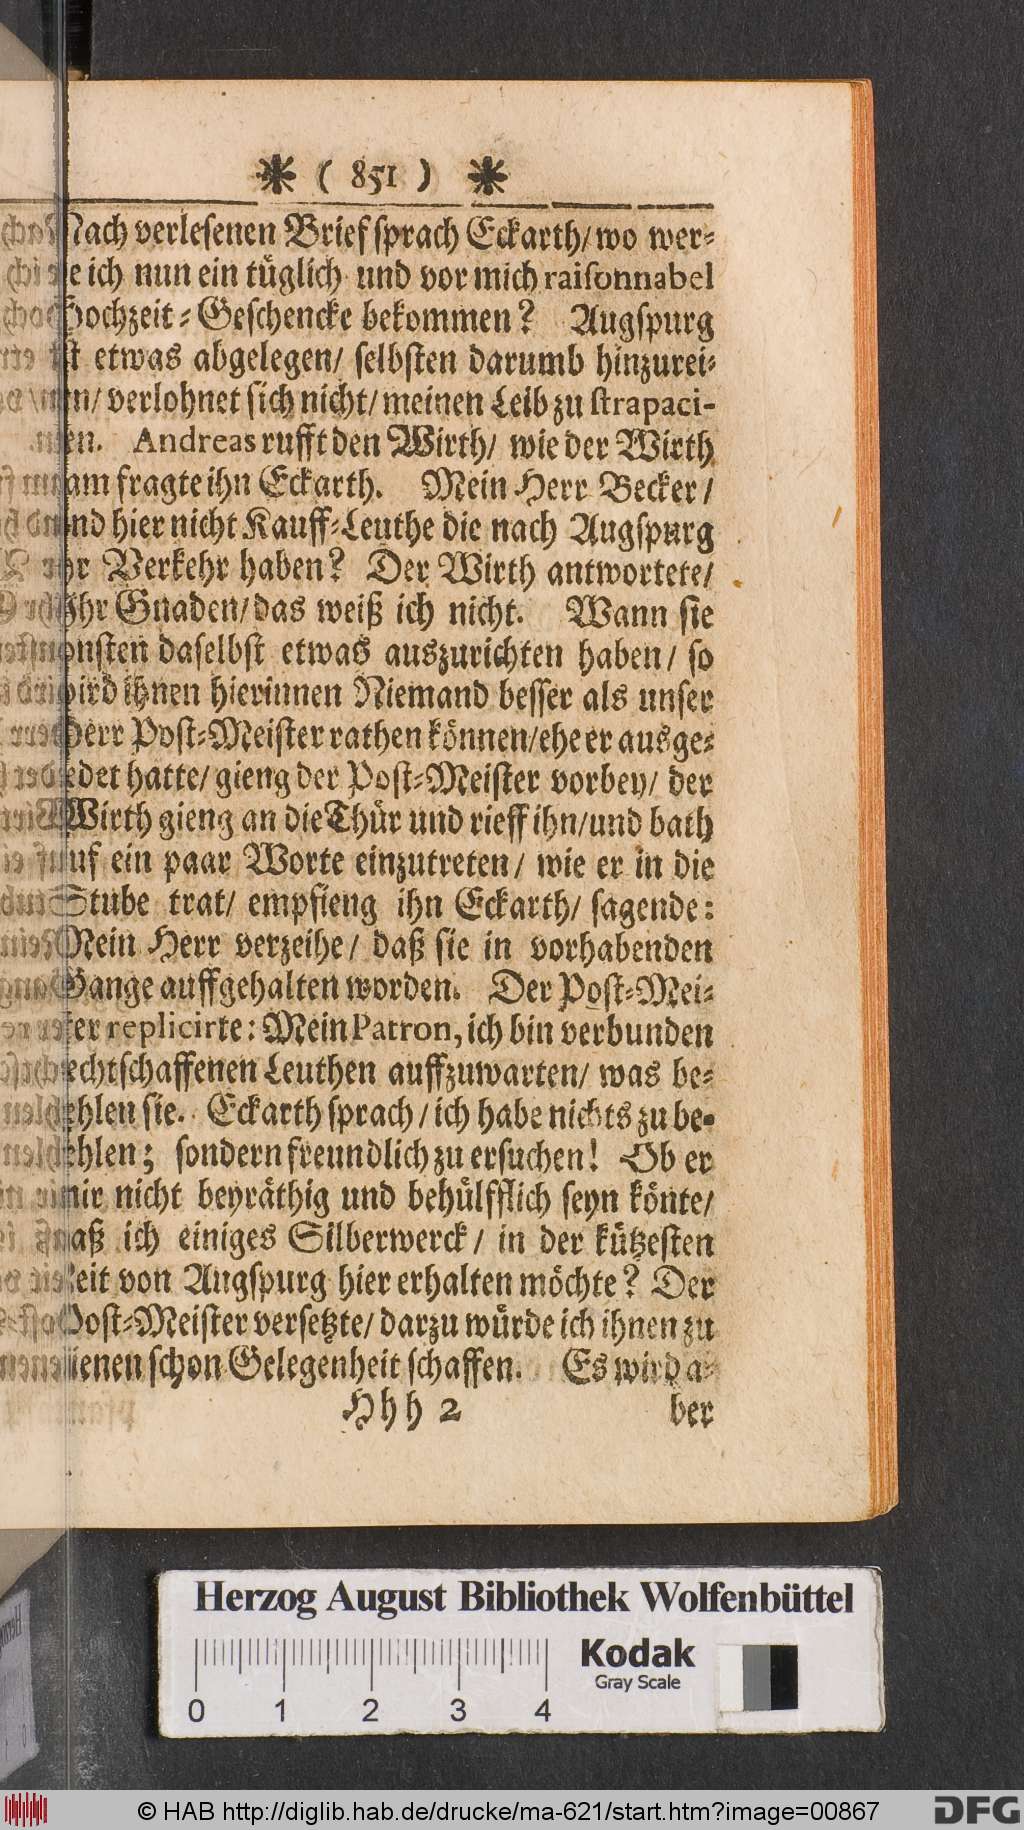 * ( 851 ) *
Nach verlesenen Brief sprach Eckarth/ wo wer-
de ich nun ein tüglich und vor mich raisonnabel
Hochzeit-Geschencke bekommen? Augspurg
ist etwas abgelegen/ selbsten darumb hinzurei-
sen/ verlohnet sich nicht/ meinen Leib zu strapaci-
ren. Andreas rufft den Wirth/ wie der Wirth
kam fragte ihn Eckarth. Mein Herr Becker/
sind hier nicht Kauff-Leuthe die nach Augspurg
ihr Verkehr haben? Der Wirth antwortete/
Ihr Gnaden/ das weiß ich nicht. Wann sie
sonsten daselbst etwas auszurichten haben/ so
wird ihnen hierinnen Niemand besser als unser
Herr Post-Meister rathen können/ ehe er ausge-
redet hatte/ gieng der Post-Meister vorbey/ der
Wirth gieng an die Thür und rieff ihn/ und bath
auf ein paar Worte einzutreten/ wie er in die
Stube trat/ empfieng ihn Eckarth/ sagende:
Mein Herr verzeihe/ daß sie in vorhabenden
Gange auffgehalten worden. Der Post-Mei-
ster replicirte: Mein Patron, ich bin verbunden
rechtschaffenen Leuthen auffzuwarten/ was be-
fehlen sie. Eckarth sprach/ ich habe nichts zu be-
fehlen; sondern freundlich zu ersuchen! Ob er
mir nicht beyräthig und behülfflich seyn könte/
daß ich einiges Silberwerck/ in der kützesten
Zeit von Augspurg hier erhalten möchte? Der
Post-Meister versetzte/ darzu würde ich ihnen zu
dienen schon Gelegenheit schaffen. Es wird a-
Hhh 2 ber
Herzog August Bibliothek Wolfenbüttel
Kodak
Gray Scale
0 1 2 3 4
© HAB http://diglib.hab.de/drucke/ma-621/start.htm?image=00867
DFG